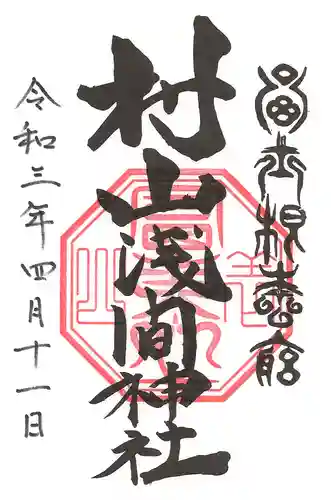 富士根本宮
村山淺間神社
令和三年四月十一日